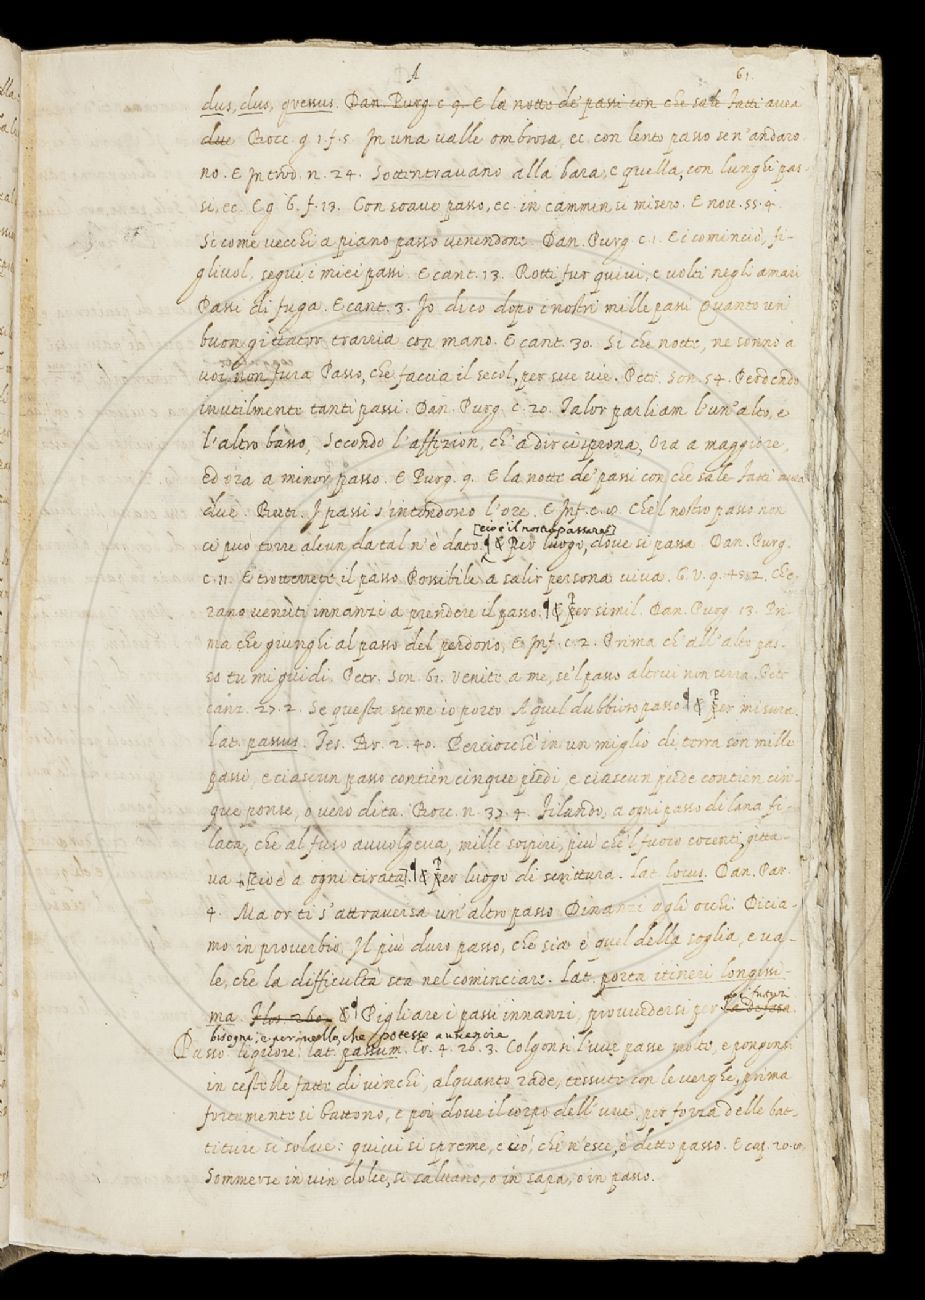 A 61.
dus, dus, gressus. Dan. Purg. c. 9. E la notte de' passi con che sale Fatti avea
due Bocc. g. 1. f. 5. In una valle ombrosa, ec. con lento passo sen' andaro
no. E Introd. n. 24. Sottentravano alla bara, e quella, con lunghi pas-
si, ec. E g. 6. f. 13. Con soave passo, ec. in cammin si misero. E nov. 55. 4.
Si come vecchi a piano passo venendone. Dan. Purg. c. 1. E i cominciò, fi-
gliuol, segui i miei passi. E cant. 13. Rotti fur quivi, e volti negli amari
Passi di fuga. E cant. 3. Io dico dopo i nostri mille passi Quanto un
buon gittator trarria con mano. E cant. 30. Si che notte, ne sonno a
voi non fura Passo, che faccia il secol, per sue vie. Petr. Son. 54. Perdendo
inutilmente tanti passi. Dan. Purg. c. 20. Talor parliam l'un' alto, e
l'altro basso, Secondo l'affezion, ch' a dir ci sprona, Ora a maggiore,
ed ora a minor passo. E Purg. 9. E la notte de' passi con che sale Fatti avea
due. Buti. I passi s'intendono l'ore. E Inf. c. 8. Che'l nostro passo non
[cioè il nostro passare]
ce può torre alcun da tal n'è dato. ¶ & Per luogo, dove si passa. Dan. Purg.
c. 11. E troverete il passo Possibile a salir persona viva. G. V. 9. che e-
rano venuti innanzi a prendere il passo. ¶ & Per simil. Dan. Purg. 13. Pri-
ma che giunghi al passo del perdono, E Inf. c. 2. Prima ch' all' alto pas-
so tu mi guidi. Petr. Son. 61. Venite a me, se'l passo altrui non serra. Petr.
canz. 27. 2. Se questa speme io porto A quel dubbioso passo ¶ & Per misura.
Lat. passus. Tes. Br. 2. 40. Perciocchè in un miglio di terra son mille
passi, e ciascun passo contien cinque piedi, e ciascun piede contien cin-
que ponse, o vero dita. Bocc. n. 37. 4. Filando, a ogni passo di lana fi-
lata, che al fuso avvolgeva, mille sospiri, più che'l fuoco cocenti, gitta-
va [cioè a ogni tirata] ¶ & Per luogo di scrittura. Lat. locus. Dan. Par.
4. Ma or ti s'attraversa un' altro passo Dinanzi agli occhi. Dicia-
mo in proverbio. Il più duro passo, che sia è quel della soglia, e va-
le, che la difficultà sta nel cominciare. Lat. porta itineri longissi-
ma. & ¶ Pigliare i passi innanzi, provvedersi per
bisogni, e per quello, che potesse avvenire
Passo liquore. Lat. passum. Cr. 4. 26. 3. Colgonsi l'uve passe molto, e pongonsi
in cestelle fatte di vinchi, alquanto rade, tessute con le verghe, prima
fortemente si battono, e poi dove il corpo dell' uve, per forza delle bat-
titure si solve: quivi si spreme, e ciò, che n'esce, è detto passo. E cap.
Sommerse in vin dolce, si salvano, o in sapa, o in passo.